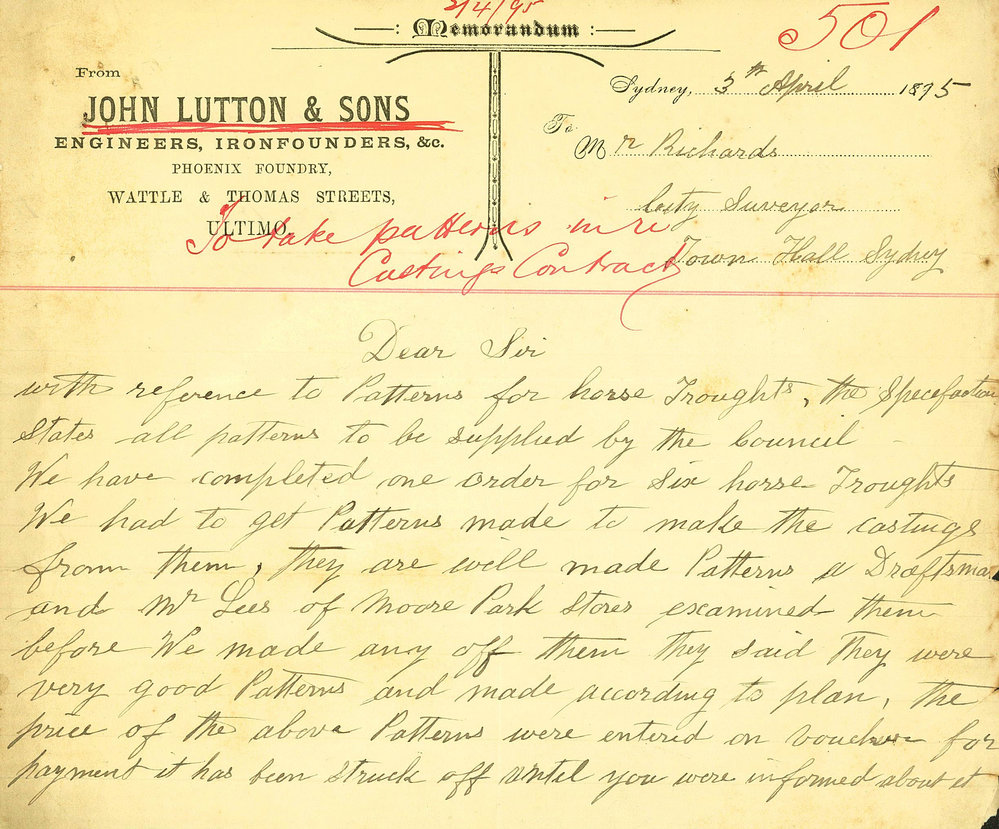 3/4/95
Memorandum
501
From
JOHN LUTTON & SONS
ENGINEERS, IRONFOUNDERS, &c.
PHOENIX FOUNDRY,
WATTLE & THOMAS STREETS,
ULTIMO.
Sydney, 3th April 1895
To
Mr Richards
City Suveyor
Town Hall Sydney
To take patterns in re
Castings Contract
Dear Sir
with reference to Patterns for horse Troughts, the Specefaction
States all patterns to be supplied by the Council
We have completed one order for six horse Troughts
We had to get Patterns made to make the castings
from them, they are well made Patterns a Draftsman
and Mr Lees of Moore Park Stores examined them
before We made any off them they said they were
very good Patterns and made according to plan, the
price of the above Patterns were entered on voucher for
payment it has been struck off until you were informed about it